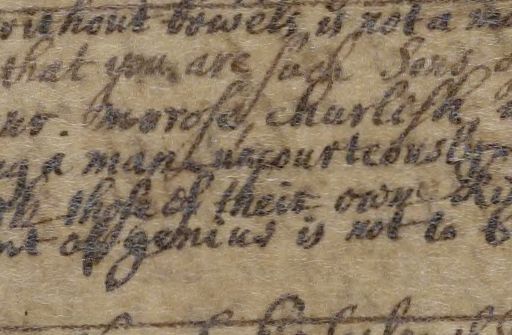 without bowels is not a m
that you are such Sons o
ur. morose, churlish,
g a man uncourteously
those of their own
nt of genius is not to b